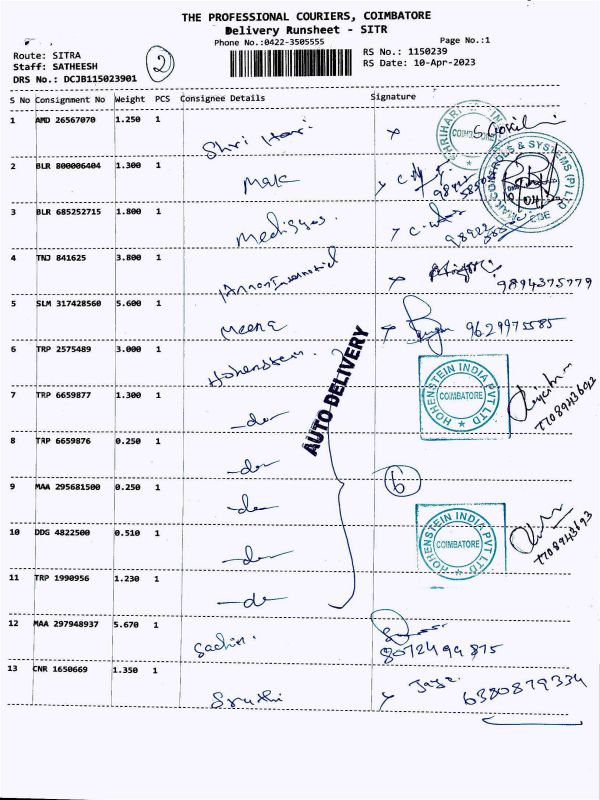 THE PROFESSIONAL COURIERS, COIMBATORE
Delivery Runsheet - SITR
Phone No.:0422-3505555 Page No.:1
Route: SITRA RS No.: 1150239
Staff: SATHEESH 2 RS Date: 10-Apr-2023
DRS No.: DCJB115023901
S No Consignment No Weight PCS Consignee Details Signature
1 AMD 26567070 1.250 1 Shri Hari x
COIMBATORE
2 BLR 800006404 1.300 1 Mak x
3 BLR 685252715 1.800 1 x
4 TNJ 841625 3.800 1 x 9894375779
5 SLM 317428560 5.600 1 Meena x 9629975585
6 TRP 2575489 3.000 1 Hohenstein.
AUTO DELIVERY
HOHENSTEIN INDIA PVT LTD
COIMBATORE
7 TRP 6659877 1.300 1 -do
8 TRP 6659876 0.250 1 -do
9 MAA 295681500 0.250 1 -do 6
10 DDG 4822500 0.510 1 -do
HOHENSTEIN INDIA PVT LTD
COIMBATORE
11 TRP 1990956 1.230 1 -do
12 MAA 297948937 5.670 1 Sachin.
13 CNR 1650669 1.350 1 Sruthi x Jaya 6380879334